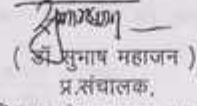 ( डॉ सुभाष महाजन )
प्र.संचालक,